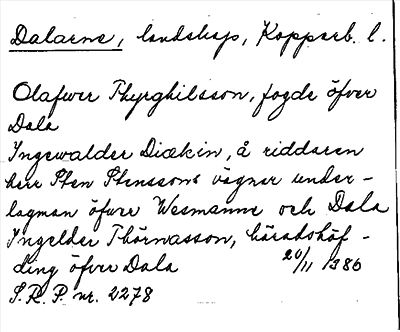 Dalarne, landskap, Kopparb. l.
Olafwer Thyrghilsson, fogde öfver
Dala
Ingewalder Diækin, å riddaren
herr Sten Stenssons vägnar under-
lagman öfver Wesmanne och Dala
Ingelder Thörnasson, häradshöf-
ding öfver Dala 20/11 1386
S. R. P. nr. 2278